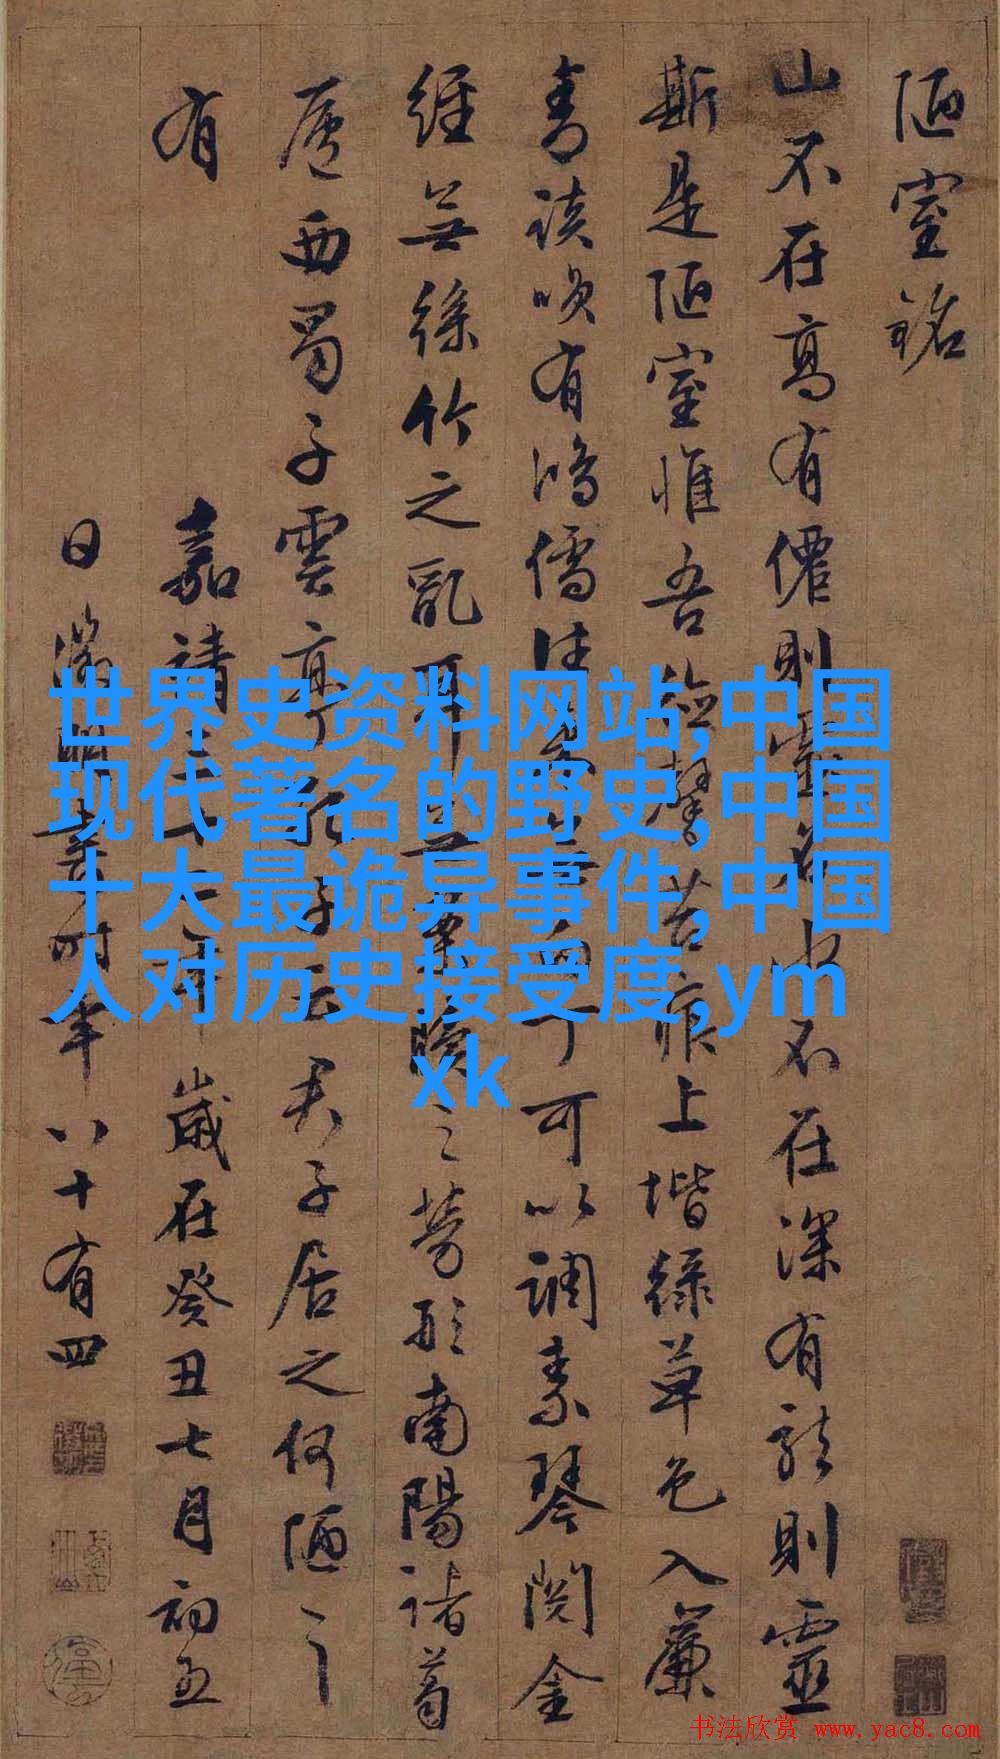 陋室銘
山不在高有僊則水不在深有龍則靈
斯是陋室惟吾德馨苔痕上堦綠草色入簾
青談咲有鴻儒往來無白丁可以調素琴閱金
經無絲竹之亂耳無案牘之勞形南陽諸葛
廬西蜀子雲亭孔子云君子居之何陋之
有
嘉靖三十二年歲在癸丑七月初五
日徵明書時年八十有四
世界史资料网站,中国
现代著名的野史,中国
十大最诡异事件,中国
人对历史接受度,ym
xk
书法欣赏 www.yac8.com